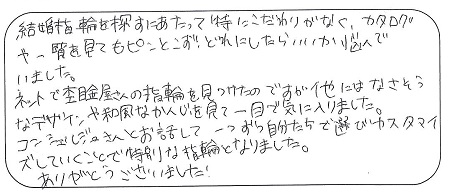 結婚指輪を探すにあたって特にこだわりがなく、カタログ
や一覧を見てもピンとこずどれにしたらいいか悩んで
いました。
ネットで杢目金屋さんの指輪を見つけたのですが他にはなさそう
なデザインや和風なかんじを見て一目で気に入りました。
コンシェルジュさんとお話して一つずつ自分たちで選びカスタマイ
ズしていくことで特別な指輪となりました。
ありがとうございました!